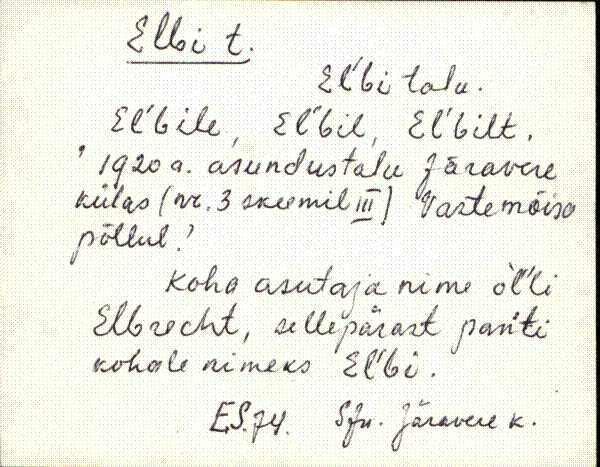 Elbi t.
El'bi talu.
El'bile, El'bil, El'bilt.
' 1920 a. asundustalu Järavere
külas (nr. 3 skeemil III) Vastemõisa
põllul.'
Koha asutaja nime òl'li
Elbrecht, sellepärast pan'ti
kohale nimeks El'bi.
E.S.74. Sfn. Järavere k.